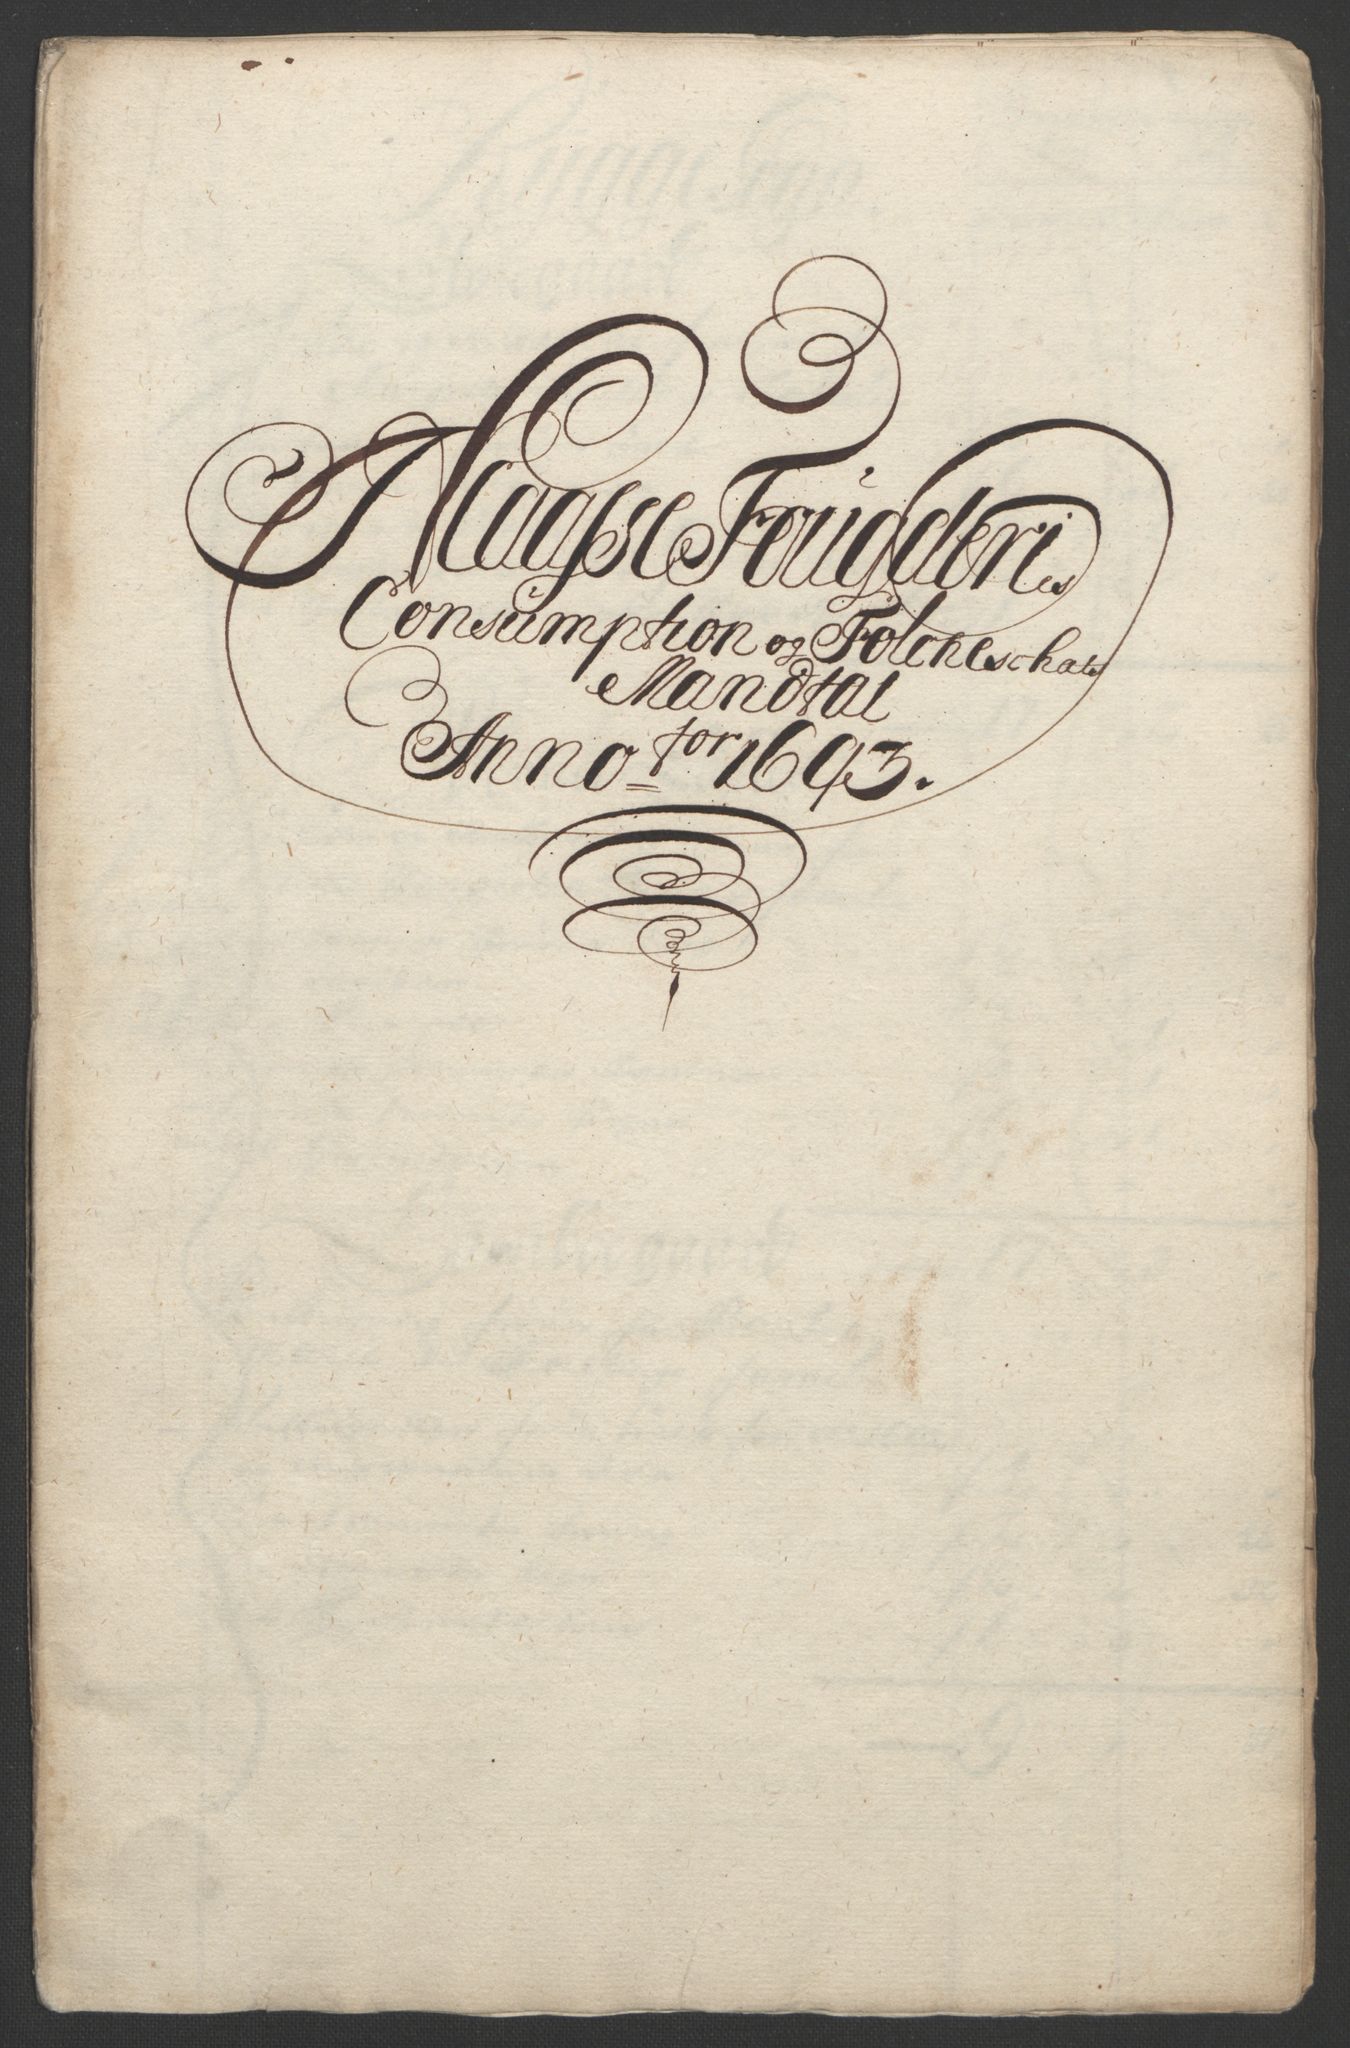 Mosse Fougderies
Consumption og Folcheschats
Mandtal
Anno for 1693.